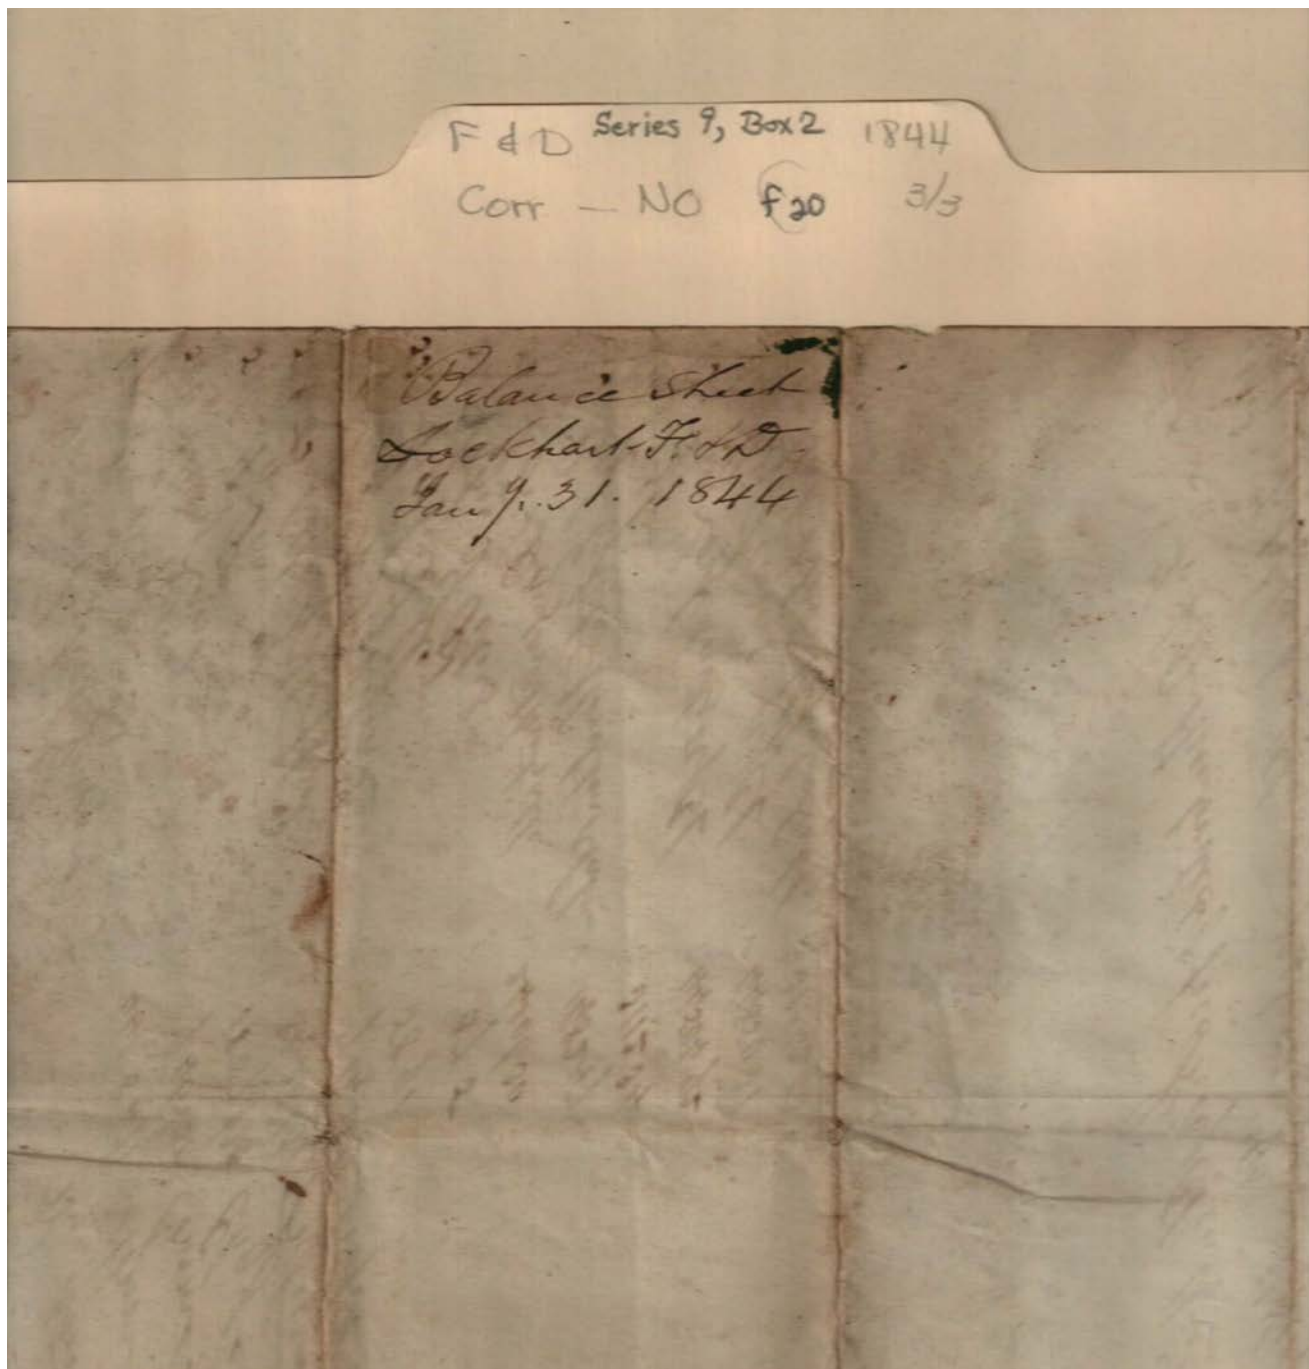 F & D Series 9, Box 2 1844
Corr — NO f20 3/3
Balance Sheet
Lockhart F. & D.
Jany. 31. 1844